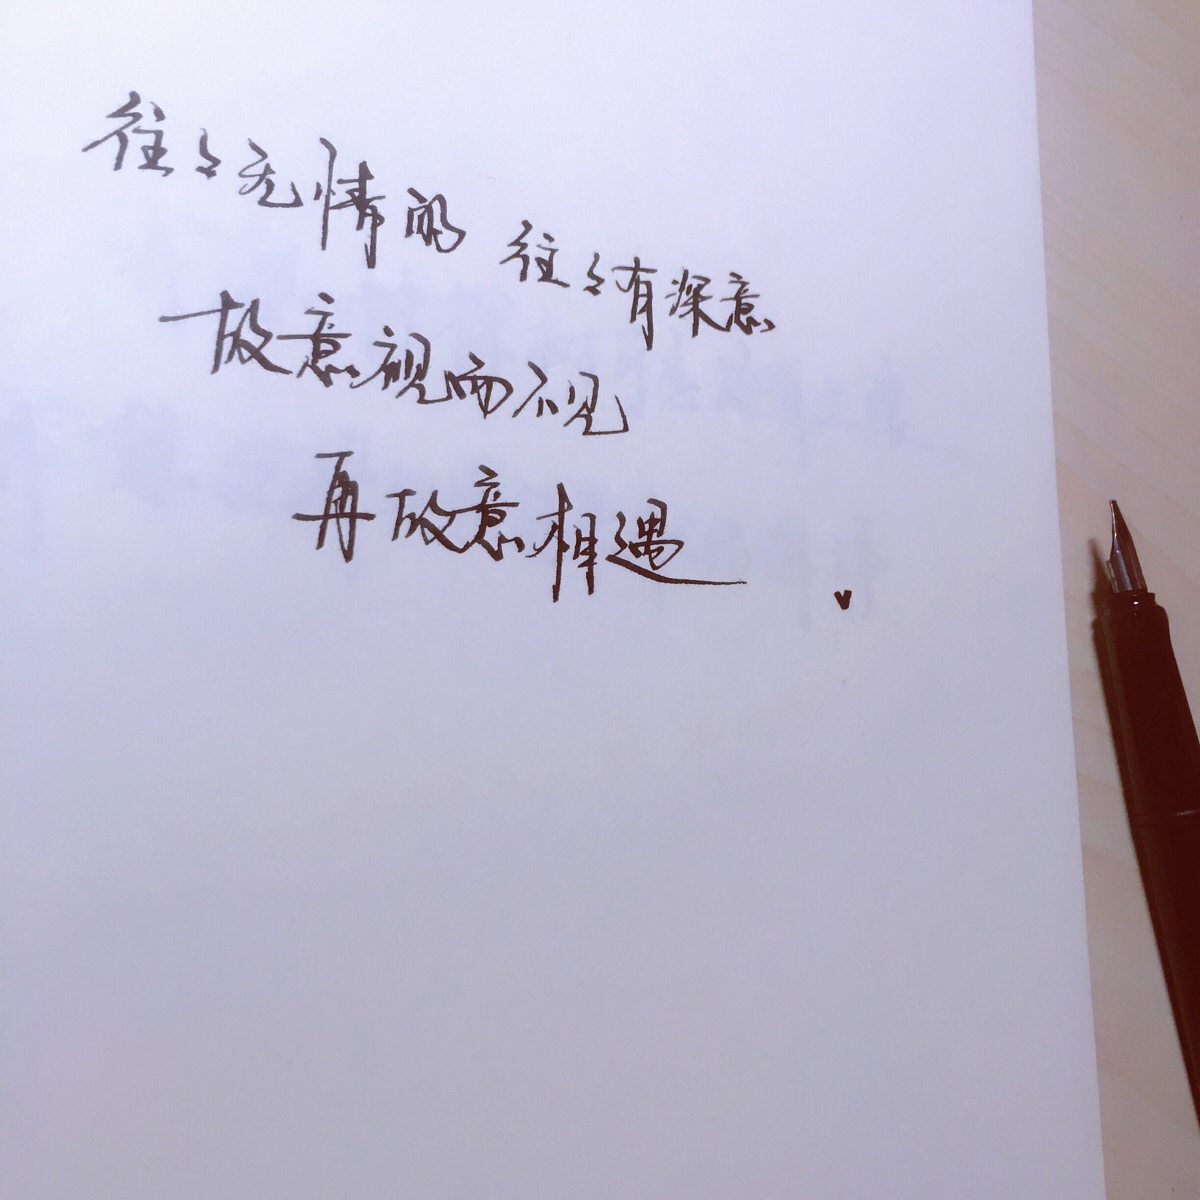 往々无情的 往々有深意
故意视而不见
再故意相遇